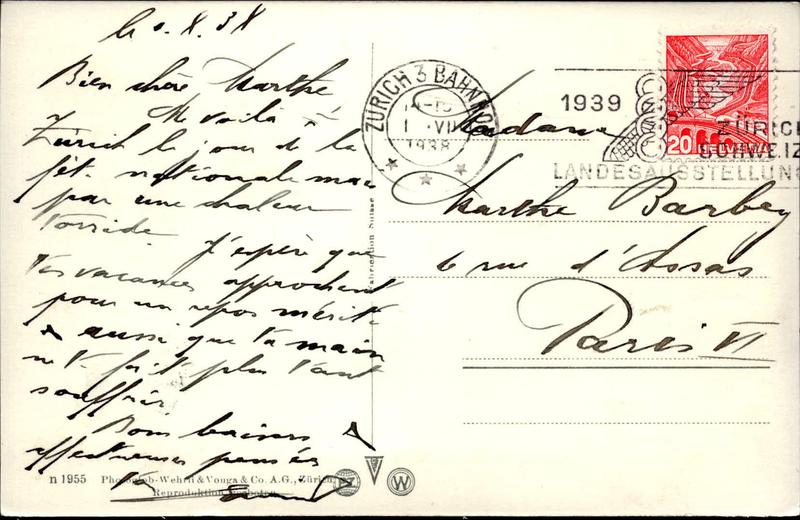 Bien chère Marthe
Me voilà à
Zürich le jour de la
fête nationale mais
par une chaleur
torride. J'espère que
tes vacances approchent
pour un repos mérité
aussi que ta main
ne te fait plus tant
souffrir.
Bons baisers
affectueuses pensées
n 1955 Photoglob-Wehrli & Vouga & Co. A.G., Zürich
Reproduktion verboten
Fabrication Suisse
ZÜRICH 3 BAHNHOF
1938
1939
ZÜRICH
SCHWEIZ.
LANDESAUSSTELLUNG
20 HELVETIA
Madame
Marthe Barbey
6 rue d'Assas
Paris VI
W